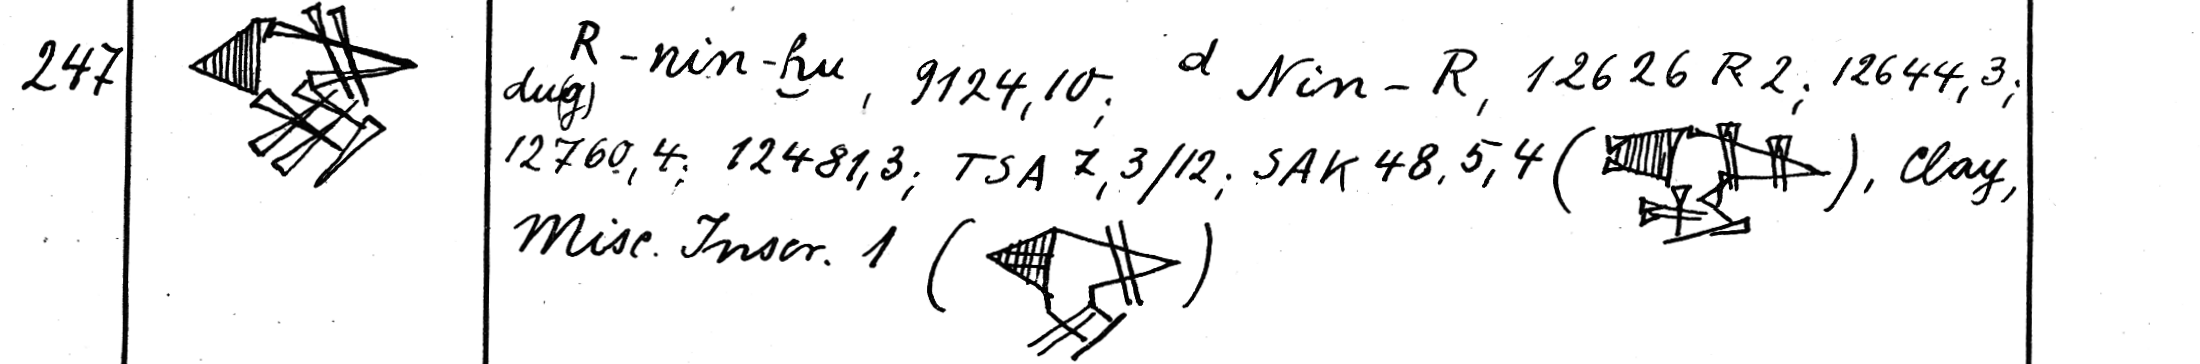 247 R-nin-ḫu, 9124,10; ᵈ Nin-R, 12626 R 2; 12644,3;
du(g)
12760,4; 12481,3; TSA 7,3/12; SAK 48,5,4 ( ), Clay,
Misc. Inscr. 1 ( )